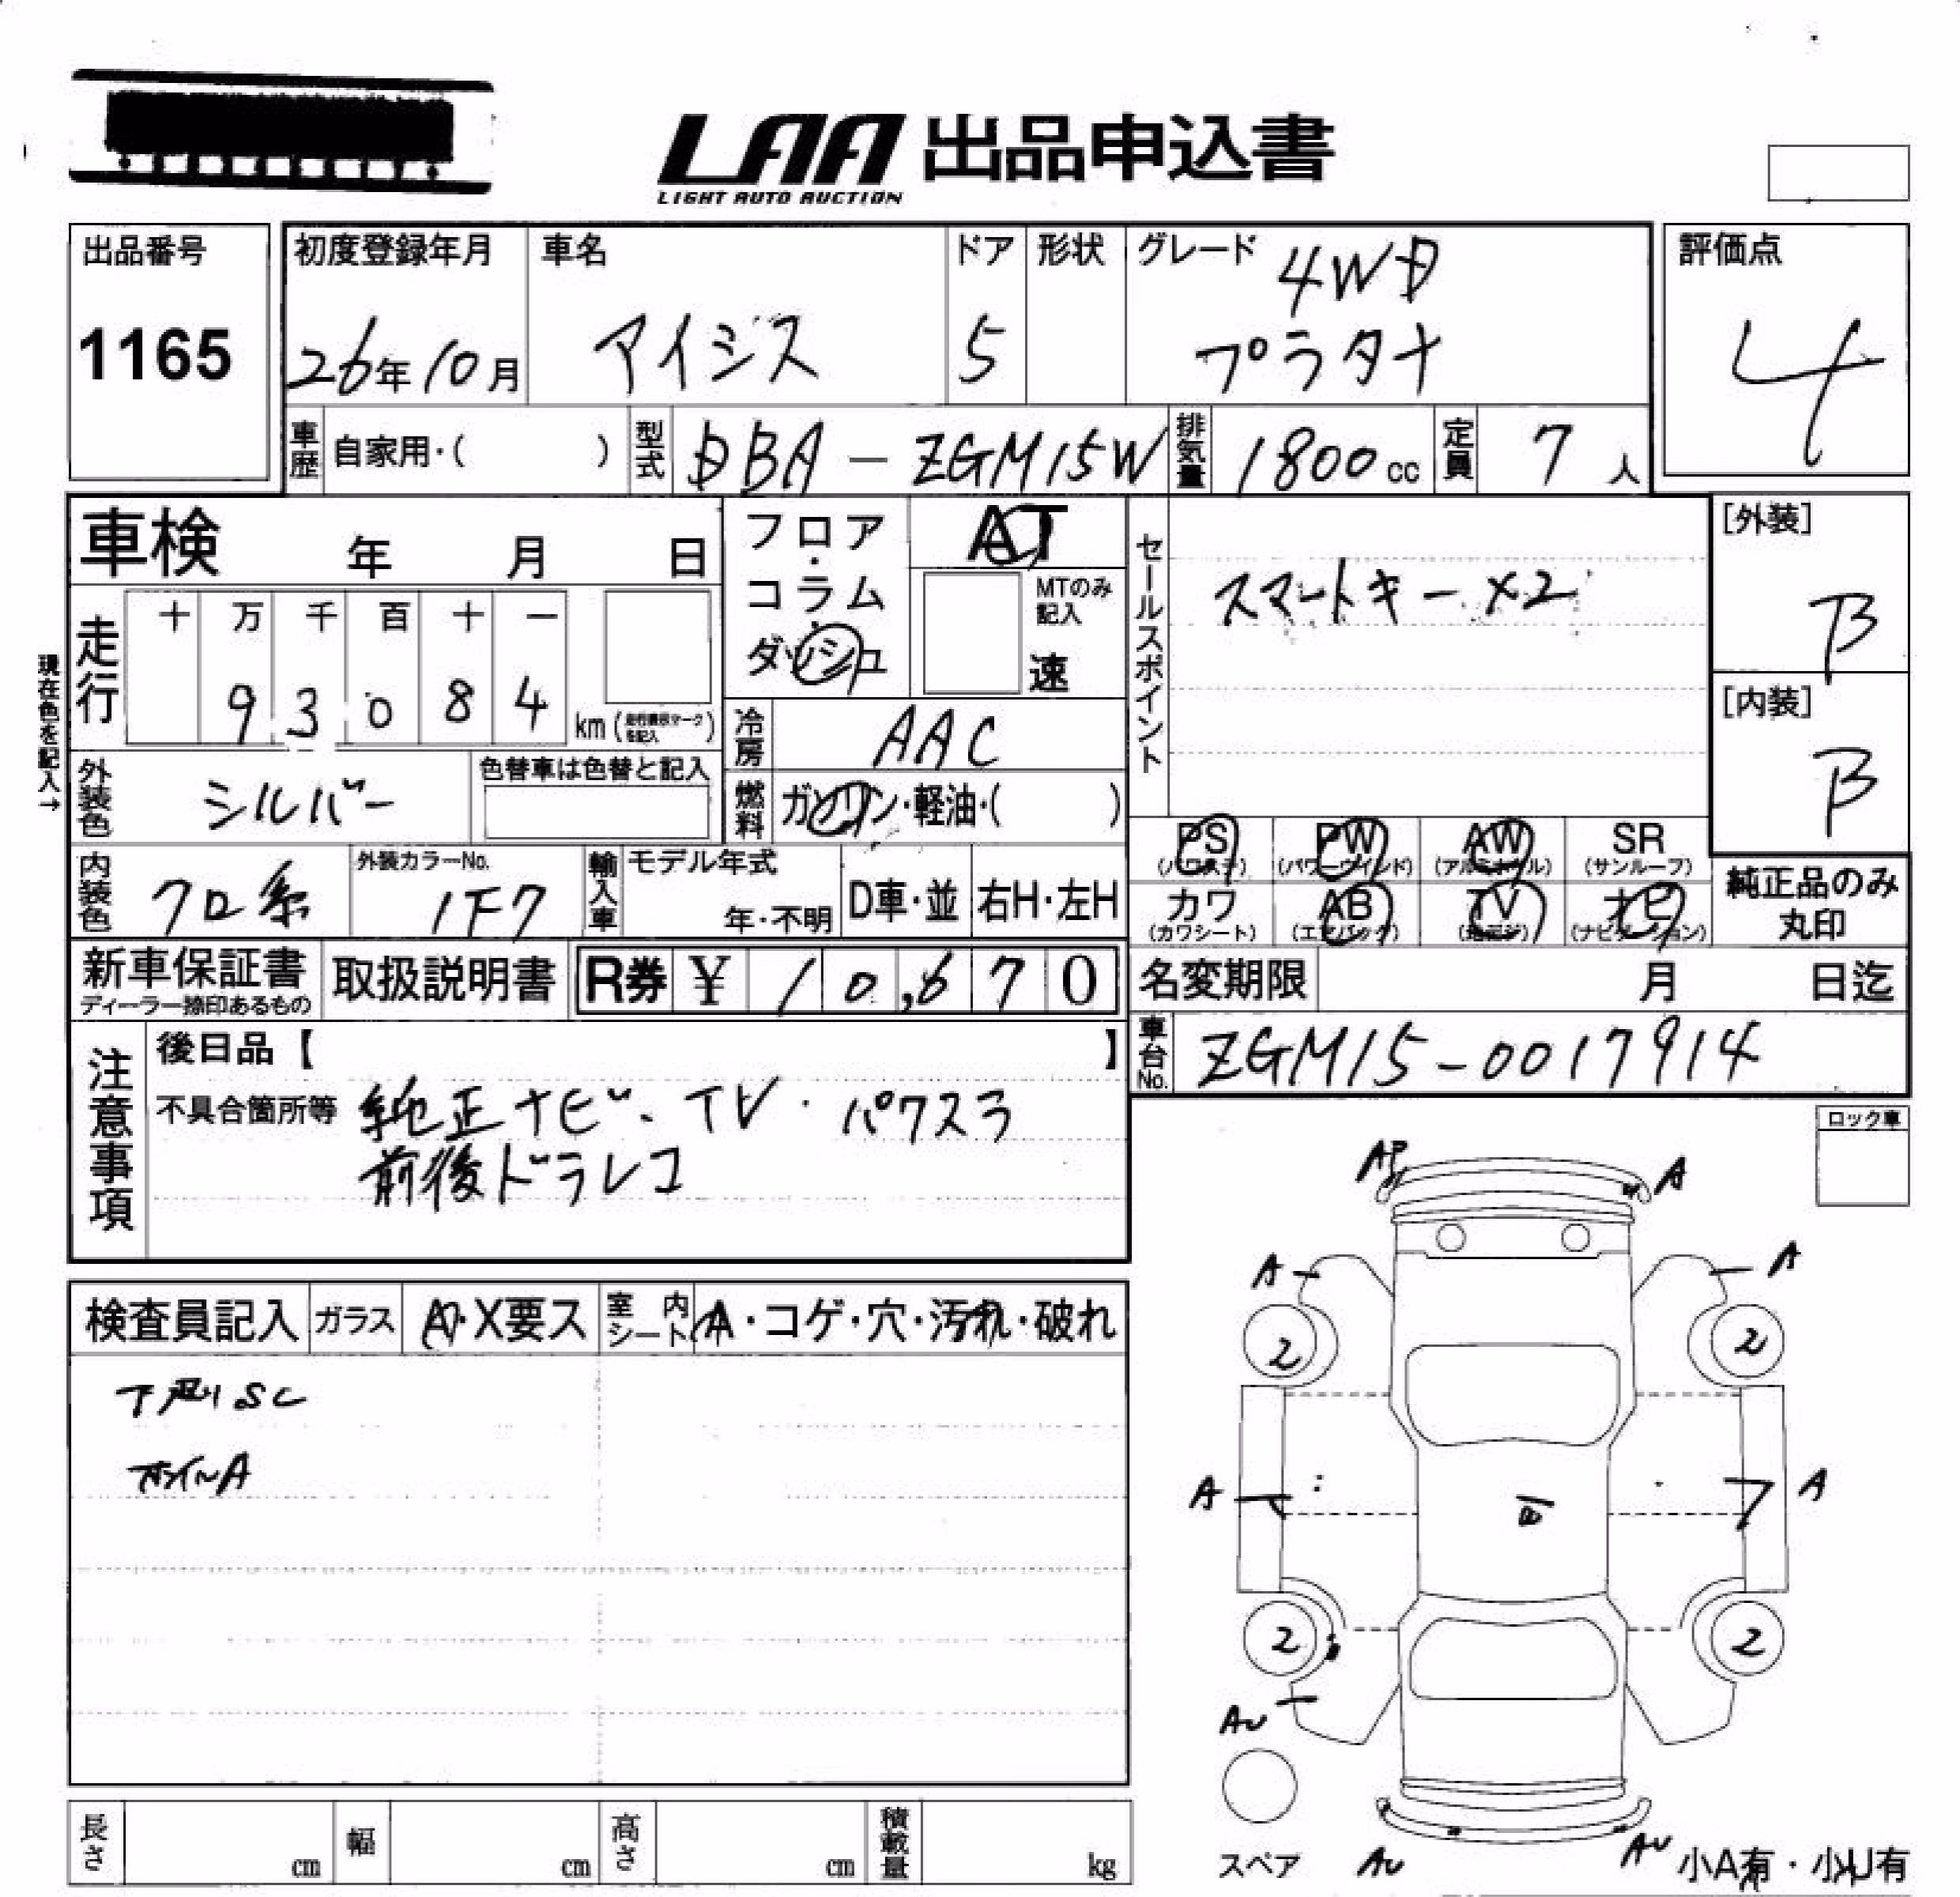 LAA 出品申込書
LIGHT AUTO AUCTION
出品番号
1165
初度登録年月
26年10月
車名
アイシス
ドア
5
形状
グレード
4WD
プラタナ
評価点
4
車歴 自家用・( )
型式 DBA-ZGM15W
排気量 1800cc
定員 7人
車検 年 月 日
フロア・コラム・ダッシュ
AT
MTのみ記入
速
セールスポイント
スマートキー ×2
[外装]
B
[内装]
B
現在色を記入→
走行
十 万 千 百 十 一
9 3 0 8 4
km
を記入
冷房 AAC
外装色 シルバー
色替車は色替と記入
燃料 ガソリン・軽油・( )
PS (パワステ)
PW (パワーウインド)
AW (アルミホイル)
SR (サンルーフ)
カワ (カワシート)
AB (エアバッグ)
TV
ナビ (ナビゲーション)
純正品のみ丸印
内装色 クロ系
外装カラーNo.
1F7
輸入車
モデル年式
年・不明
D車・並
右H・左H
新車保証書
ディーラー捺印あるもの
取扱説明書
R券 ¥ 10,670
名変期限 月 日迄
車台No. ZGM15-0017914
注意事項
後日品【 】
不具合箇所等 純正ナビ・TV・パワスラ
前後ドラレコ
ロック車
検査員記入
ガラス
A・X要ス
室内シート
A・コゲ・穴・汚れ・破れ
下廻りSC
ホイルA
AP
A
A
A
2
2
A
A
2
2
AU
スペア
AU
AU
小A有・小U有
長さ cm
幅 cm
高さ cm
積載量 kg